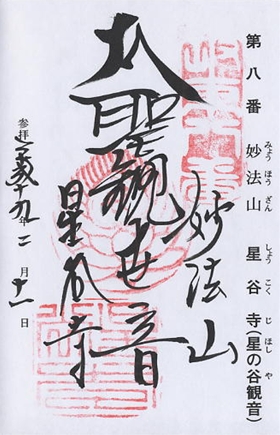 第八番 妙法山 星谷寺(星の谷観音)
みょう ほう ざん しょう こく じ ほし や
妙法山
大聖観世音
星谷寺
参拝 平成十九年二月十一日